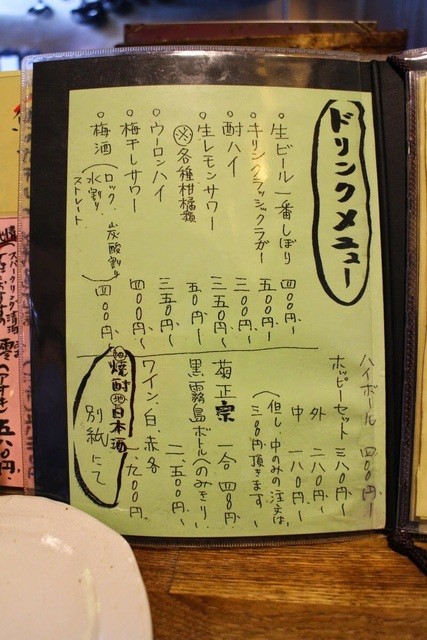 ドリンクメニュー
○生ビール一番しぼり 四〇〇円〜
○キリンクラッシックラガー 五〇〇円〜
○酎ハイ 三〇〇円〜
○生レモンサワー 三五〇円〜
※各種柑橘類 五〇円〜
○ウーロンハイ 三五〇円〜
○梅干しサワー 四〇〇円〜
○梅酒(ロック、炭酸割り
水割り、ストレート) 四〇〇円〜
ハイボール 四〇〇円〜
ホッピーセット 三八〇円〜
外 二八〇円〜
中 一八〇円〜
(但し、中のみの注文は、
三〇〇円頂きます)
菊正宗 一合 四〇〇円〜
黒霧島ボトル(のみきり)
二、五〇〇円〜
ワイン、白、赤各 一、九〇〇円
焼酎地日本酒
別紙にて
スパークリング清酒
五八〇円